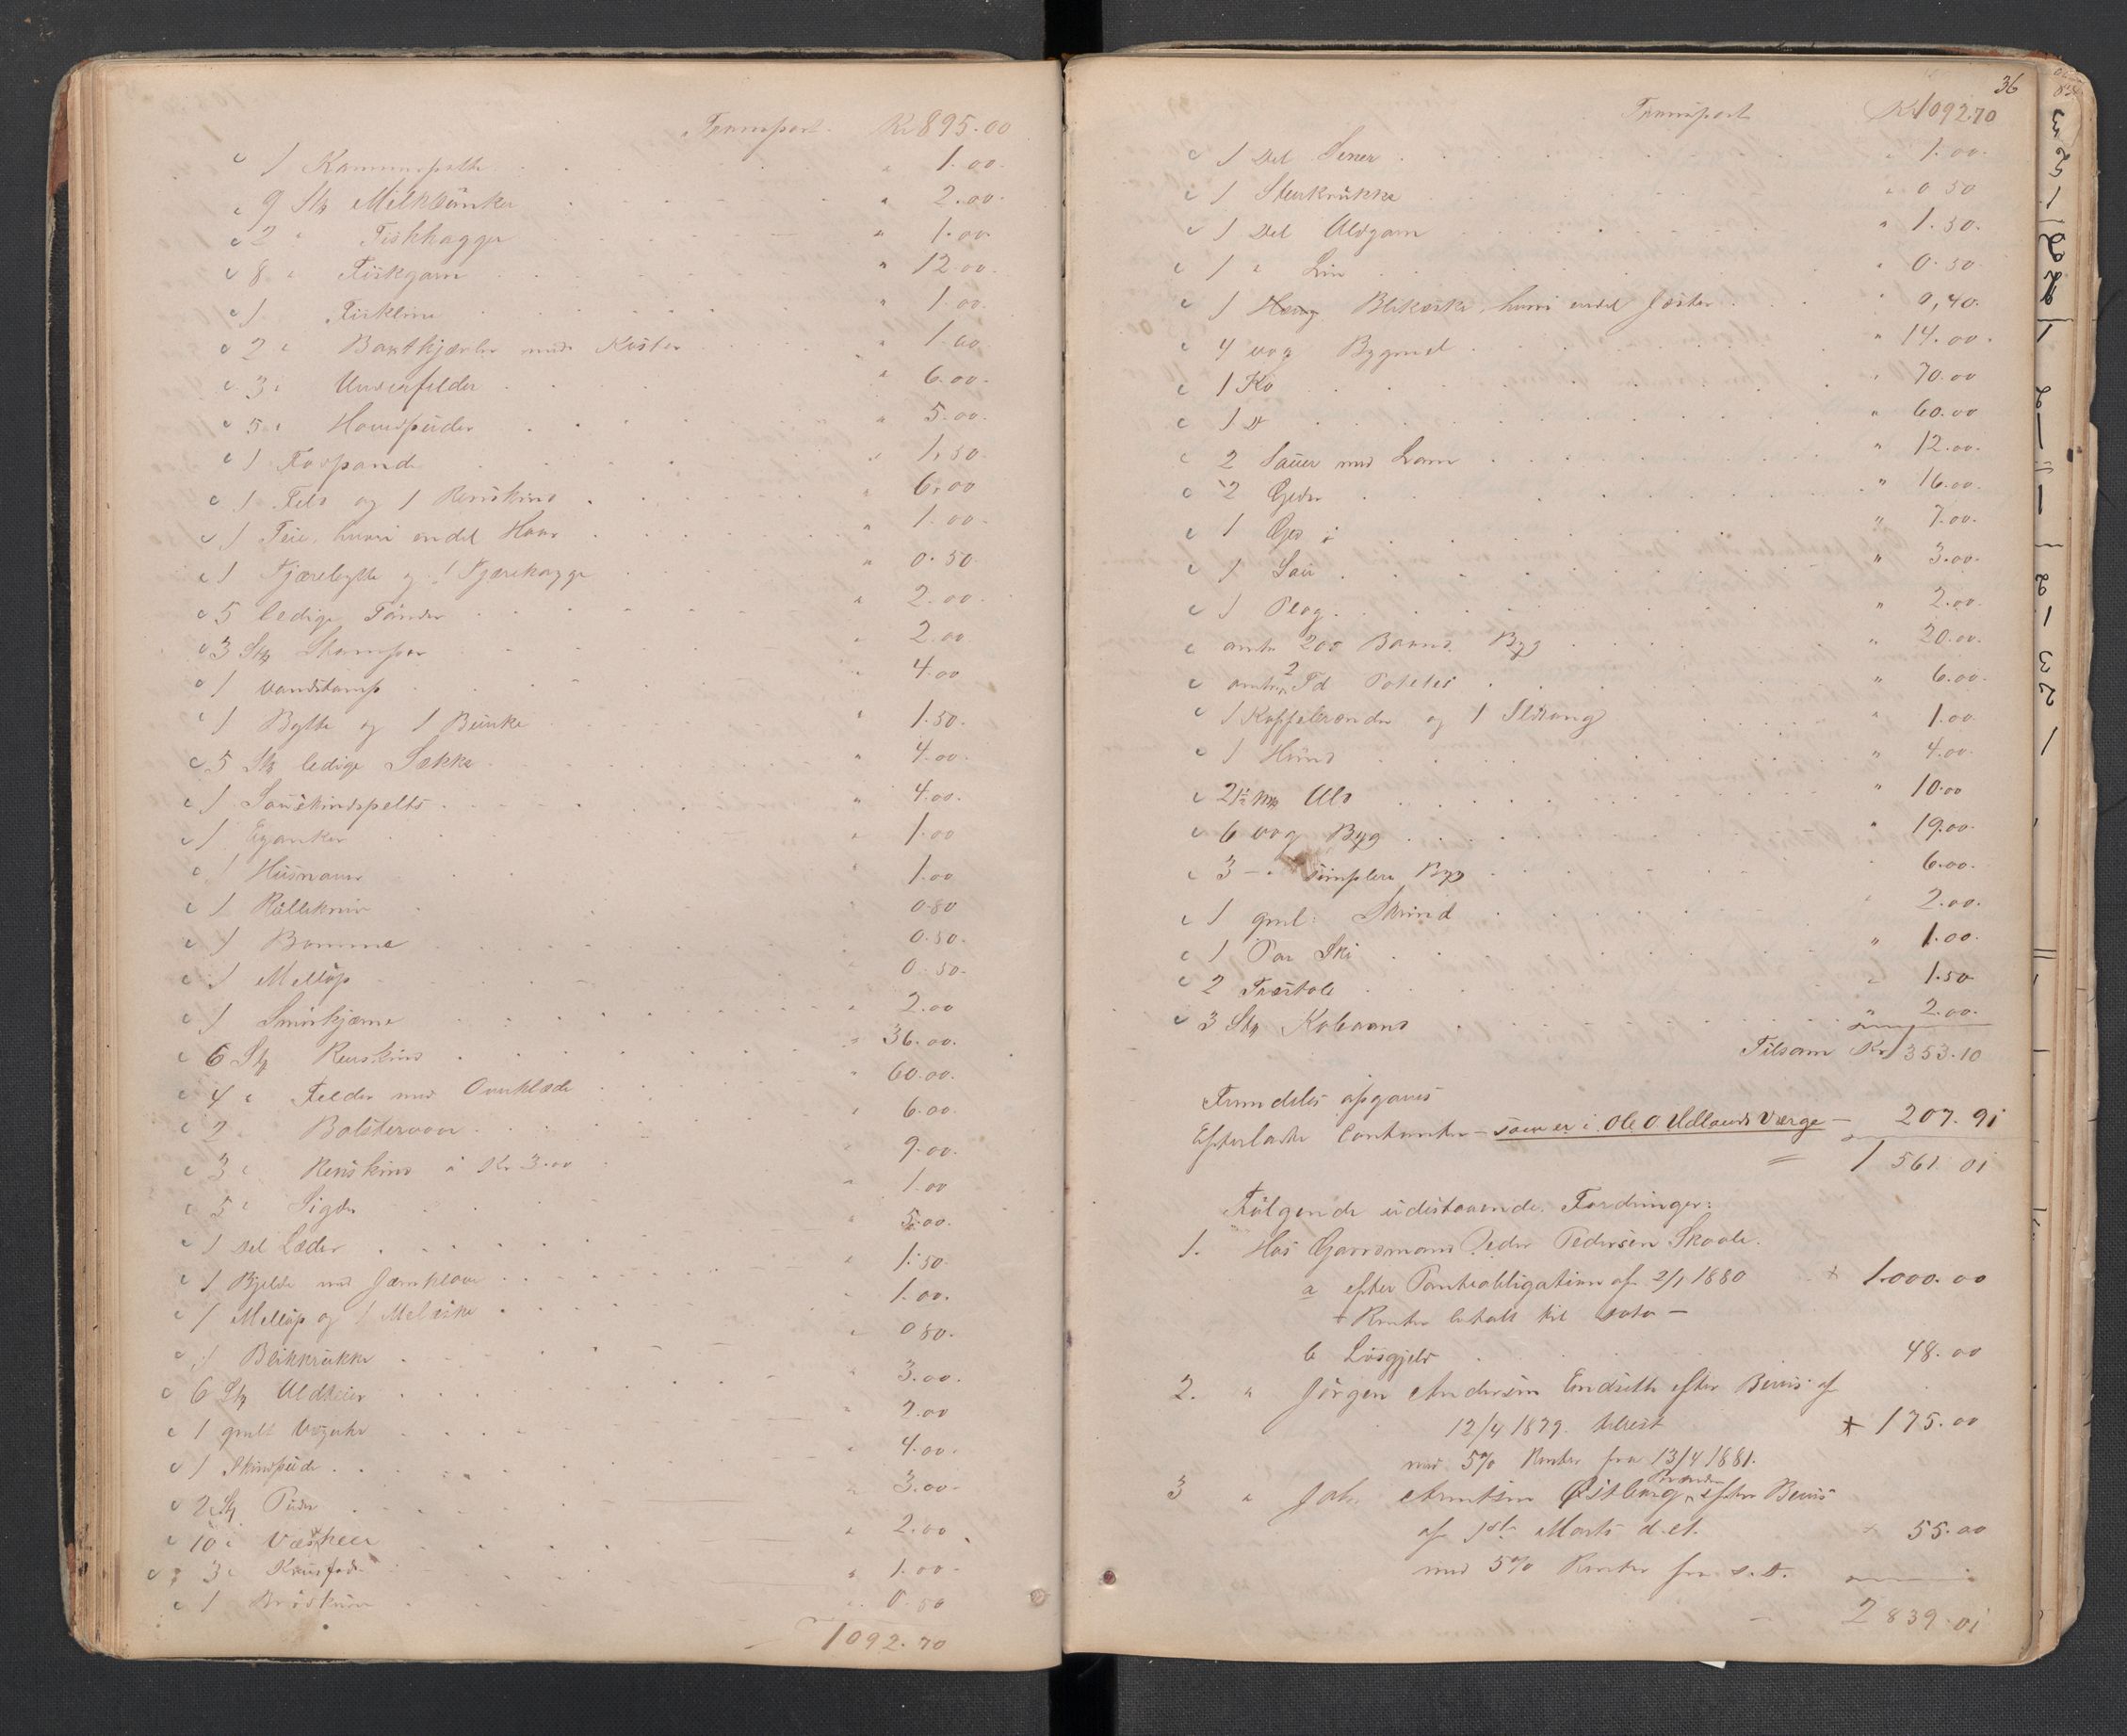 Transport Kr 895.00
1 1.00
9 Stk Melkebunker " 2.00
2 " Fiskhagger " 1.00
8 " Fiskgarn " 12.00
1 Fiskline " 1.00
2 " med Koster " 1.00
3 " Underfelder " 6.00
5 " Hovedpuder " 5.00
1 " 1.50
1 Feld og 1 Renskind " 6.00
1 Teie, hvori endel Haar " 1.00
1 Tjærebytte og 1 Tjærekagge " 0.50
5 ledige Tönder " 2.00
3 Stk Stamper " 2.00
1 Vandstamp 4.00
1 Bytte og 1 Bunke " 1.50
5 Stk ledige Sækker " 4.00
1 Saueskindspelts " 4.00
1 " 1.00
1 1.00
1 Rullekniv 0.80
1 Bomme 0.50
1 Mellöp 0.50
1 Smörkjærne " 2.00
6 Stk Renskind " 36.00
4 " Felder med Overklæde " 60.00
2 Bolstervaar " 6.00
3 " Renskind á Kr 3.00 9.00
5 " Sigder 1.00
1 Del Læder 5.00
1 Bjelde med Jernklave 1.50
1 Mellöp og 1 1.00
1 Blikkrukke 0.80
6 Stk Uldteier 3.00
1 gmlt 2.00
1 Skindpude 4.00
2 Stk Puder 3.00
10 " 2.00
3 " 1.00
1 0.50
1092.70
36
Transport Kr 1092.70
1 Del Sener " 1.00
1 Stenkrukke " 0.50
1 Del Uldgarn " 1.50
1 " Lin " 0.50
1 Blikæske, hvori endel " 0,40
4 vog Bygmel " 14.00
1 Ko " 70.00
1 D " 60.00
2 Sauer med Lam " 12.00
2 Geder " 16.00
1 Ged " 7.00
1 Sau " 3.00
1 Plog " 2.00
omtr 200 Baand Byg " 20.00
omtr 2 Td Poteter " 6.00
1 Kaffebrænder og 1 Ildtang " 1.00
1 Hund " 4.00
2½ Uld " 10.00
6 vog Byg " 19.00
3 - " simplere Byg 6.00
1 gml: Skrind " 2.00
1 Par Ski " 1.00
2 Træstole 1.50
3 Stk " 2.00
Tilsam Kr 1353.10
Fremdeles opgaves
Efterladte Contanter - som er i Ole O. Udlands Værge - 207.91
1 561 01
Fölgende udestaaende Fordringer:
1. Hos Gaardmand Peder Pedersen Skaale.
a efter Pantobligation af 2/1 1880 1.000.00
+ Renter betalt til dato -
b Lösgjeld 48.00
2. " Jörgen Andersen efter Bevis af
12/4 1879. Urest 175.00
med 5% Renter fra 13/4 1881.
3 " Joh. Arntsen Østberg, efter Bevis
af 1ste Marts d.A. 55.00
med 5% Renter fra s.D.
2 839.01